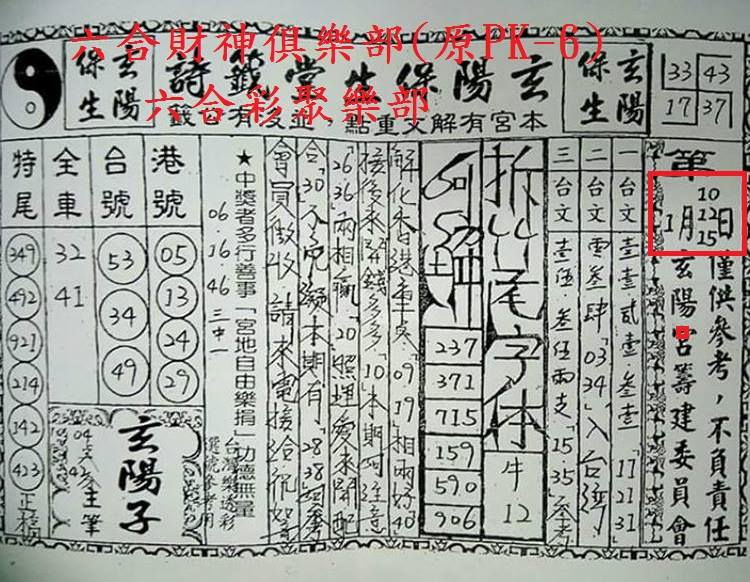 六合財神俱樂部(原PK-6)
六合彩聚樂部
玄陽保生
玄陽保生堂籤詩
玄陽保生
本宮有解文重點，並多有公籤
33 43
17 37
第
1月 10 12 15 日
僅供參考，不負責任
玄陽宮籌建委員會
一 台文 壹壹·貳壹·叁壹 11 21 31
二 台文 零叁肆 03 34 入台灣
三 台文 壹伍·叁伍兩支 15·35 參考
拆竹尾字体
牛 12
237
371
715
159
590
906
09·19 相兩好 40
接後來開錢多多 10 本期可注意
26 36 兩相贏 20 照理愛來開配
合 30 不可凝本期有 28 38
會員
請來電
★中獎者多行善事「宮地自由樂捐」功德無量
06·16·46 三中一
台灣樂透彩
選號參考用
港號
05
13
24
29
台號
53
34
49
全車
32
41
特尾
349
492
921
214
142
423
玄陽子
主筆
04